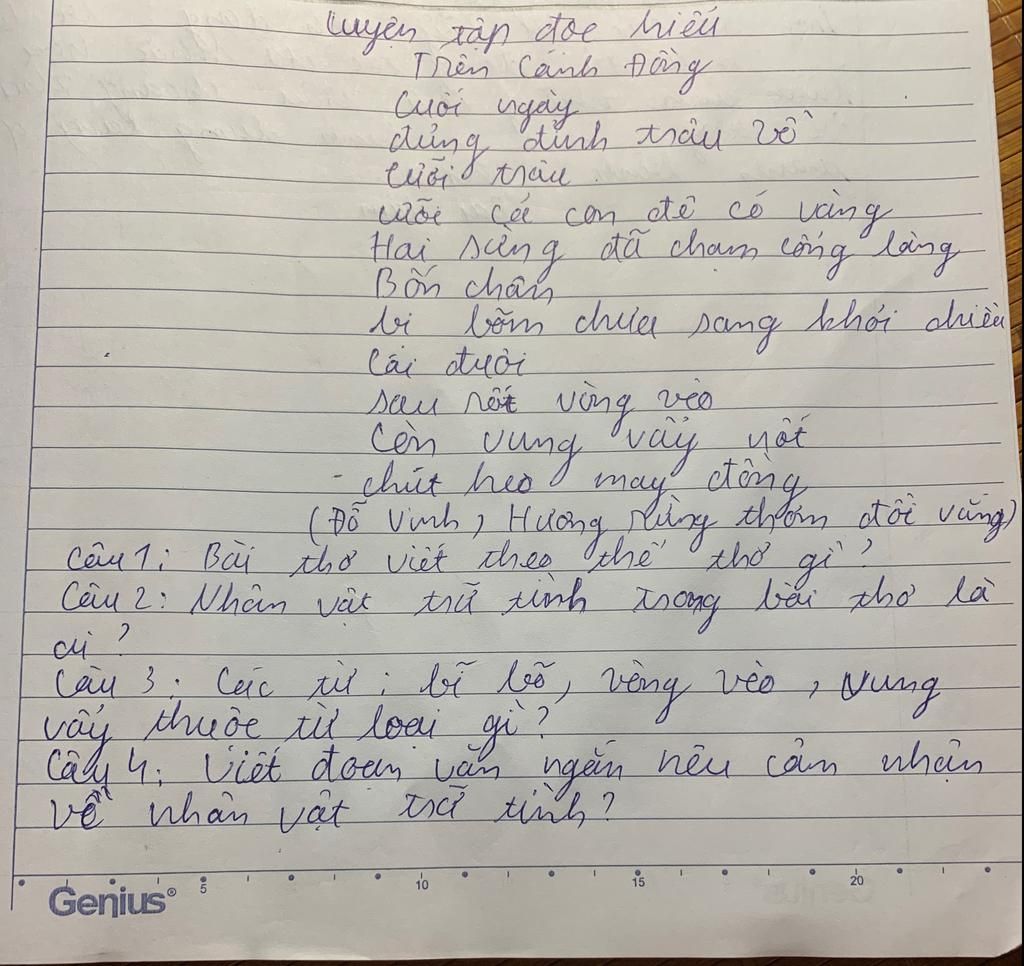 Luyện tập đọc hiểu
Trên Cánh Đồng
Cuối ngày
đủng đỉnh trâu về
Cưỡi trâu
cưỡi cả con đê cỏ vàng
Hai sừng đã chạm cổng làng
Bốn chân
bì bõm chưa sang khỏi chiều
Cái đuôi
sau rốt vòng vèo
Còn vung vẩy nốt
chút heo may đồng
(Đỗ Vinh, Hương rừng thơm đồi vắng)
Câu 1: Bài thơ viết theo thể thơ gì?
Câu 2: Nhân vật trữ tình trong bài thơ là
ai?
Câu 3: Các từ: bĩ bõ, vòng vèo, vung
vẩy thuộc từ loại gì?
Câu 4: Viết đoạn văn ngắn nêu cảm nhận
về nhân vật trữ tình?
5 10 15 20
Genius®